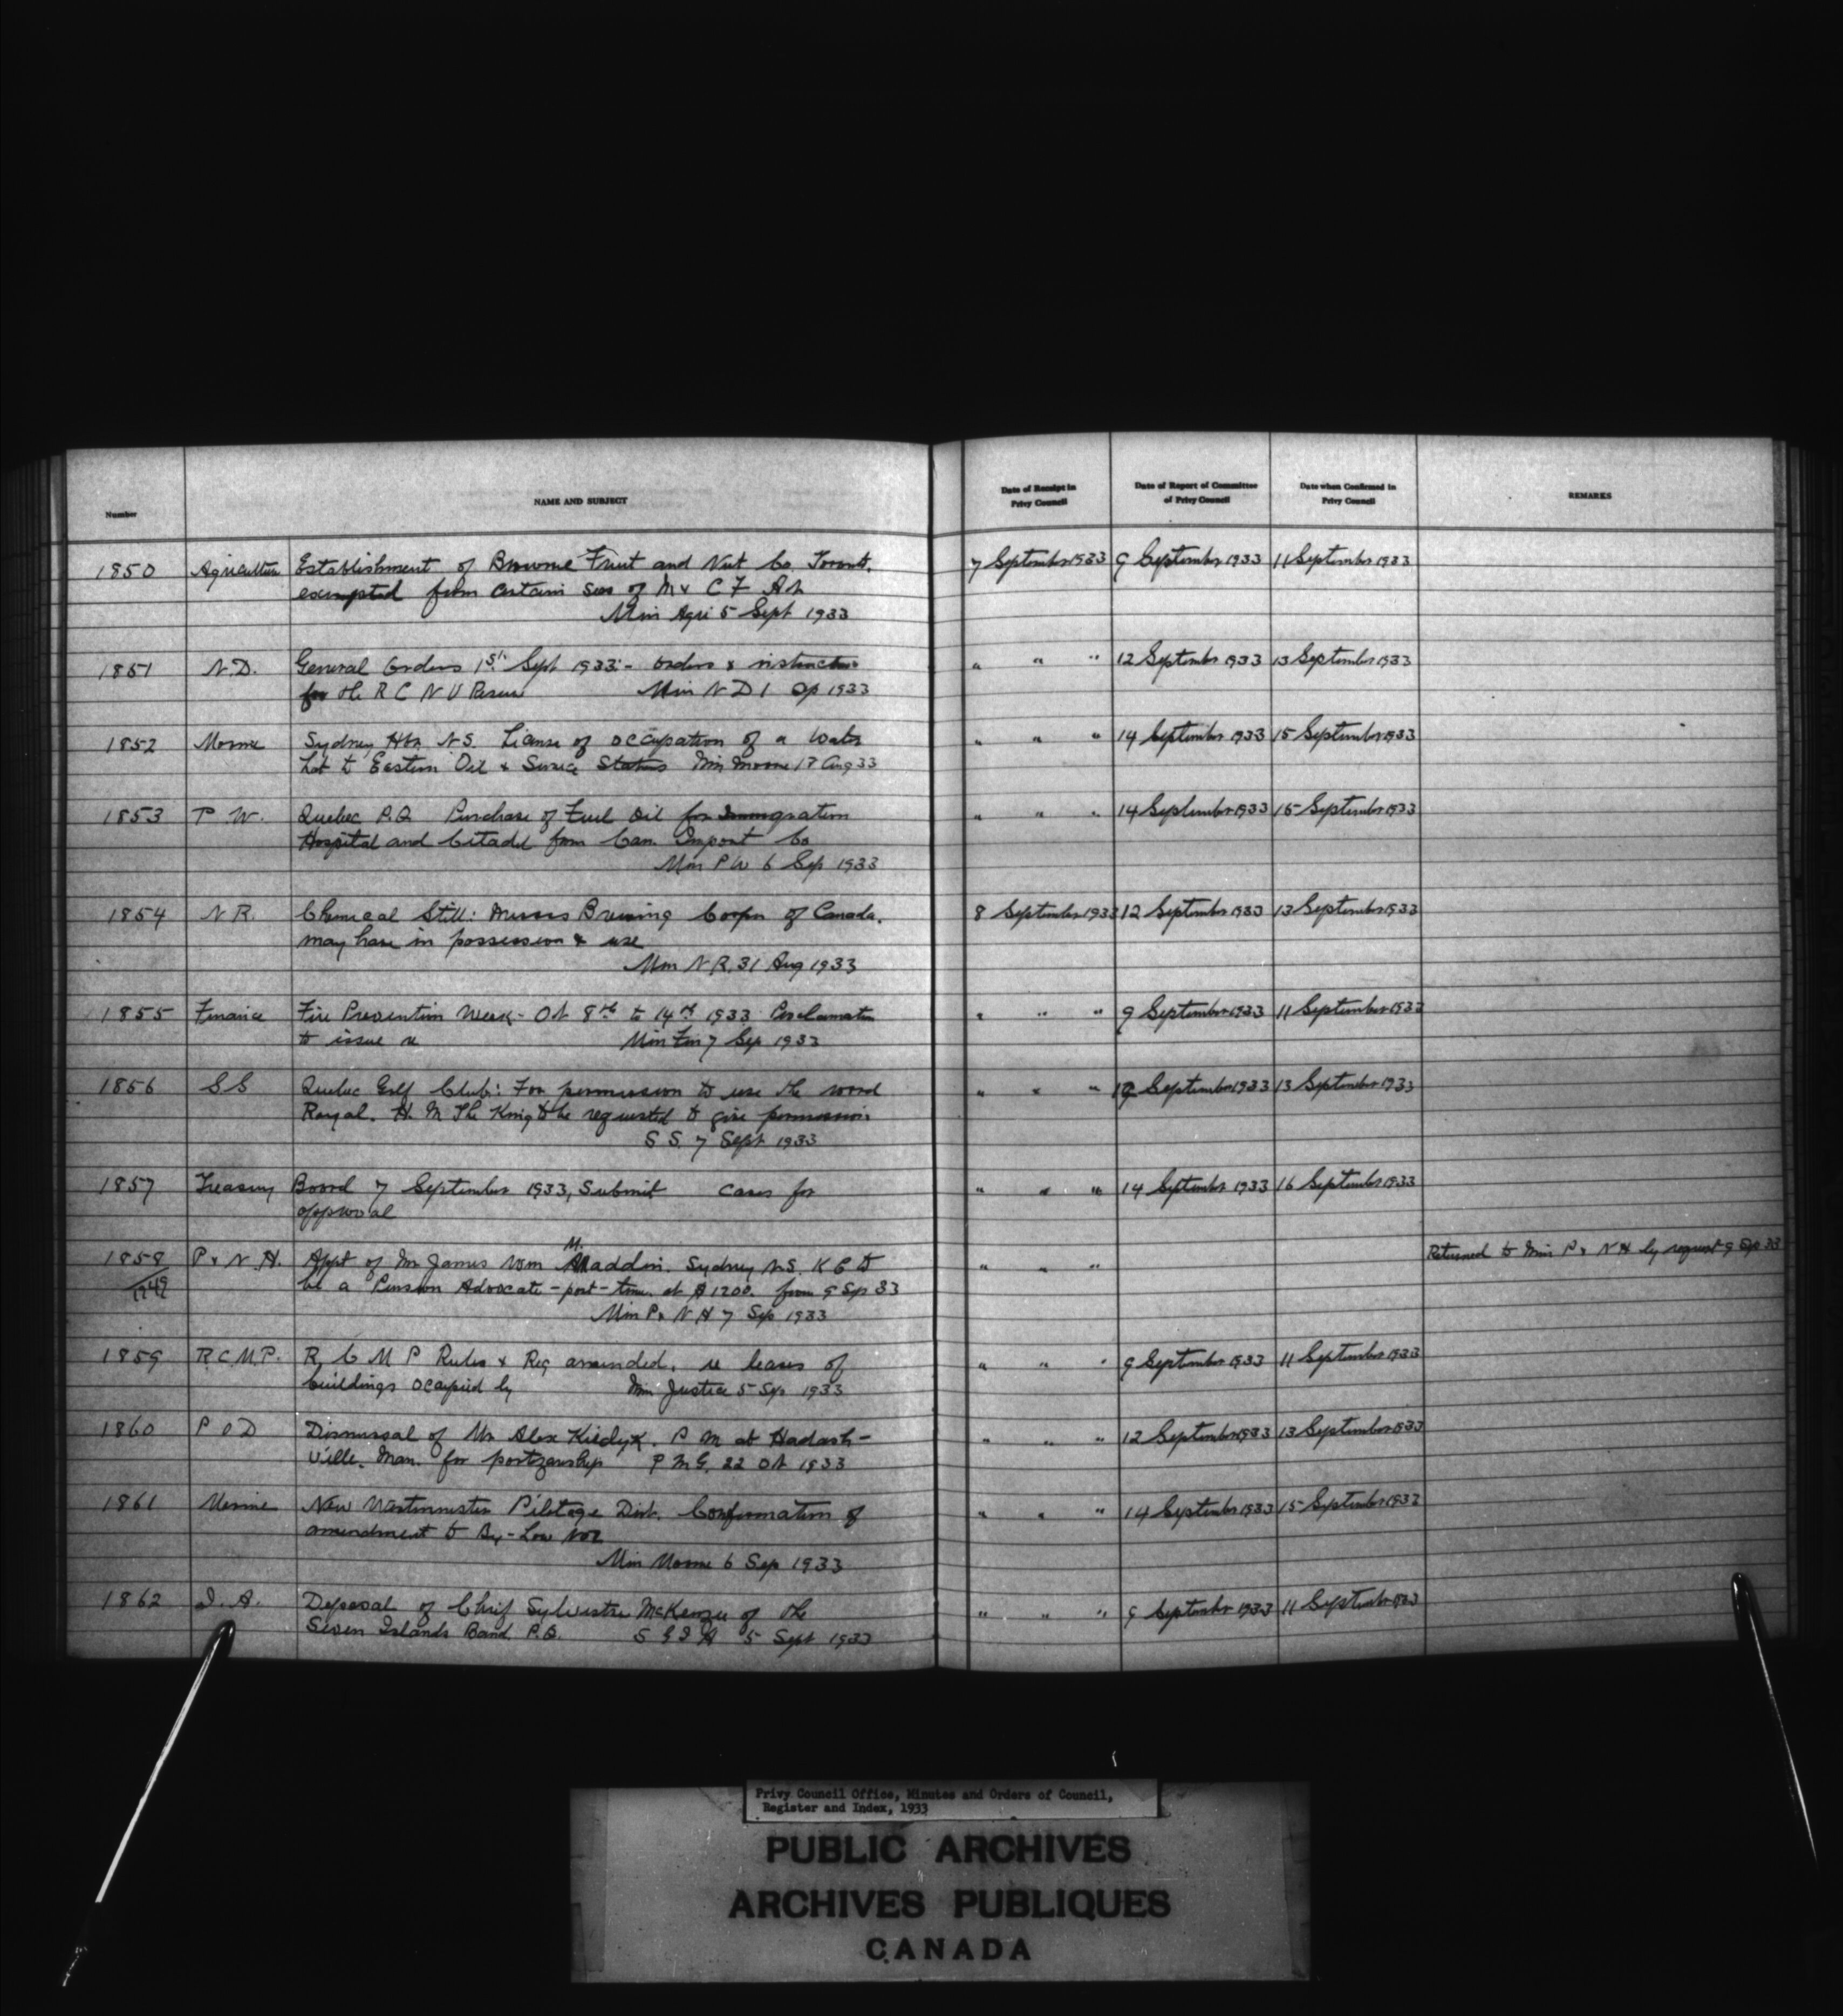 Number
NAME AND SUBJECT
Date of Receipt in
Privy Council
Date of Report of Committee
of Privy Council
Date when Confirmed in
Privy Council
REMARKS
1850 Agriculture Establishment of Browne Fruit and Nut Co. Toronto. 7 September 1933 9 September 1933 11 September 1933
exempted from certain secs of M & C F Act
Min Agri 5 Sept 1933
1851 N.D. General Orders 1st Sept 1933:- orders & instructions " " " 12 September 1933 13 September 1933
for the R C N V Reserve Min N D 1 Sep 1933
1852 Marine Sydney Hbr. N.S. License of occupation of a Water " " " 14 September 1933 15 September 1933
Lot to Eastern Oil & Service Stations Min Marine 17 Aug 33
1853 P. W. Quebec P.Q. Purchase of Fuel Oil for Immigration " " " 14 September 1933 15 September 1933
Hospital and Citadel from Can. Import Co
Min P W 6 Sep 1933
1854 N R. Chemical Still: Messrs Brewing Corpn of Canada. 8 September 1933 12 September 1933 13 September 1933
may have in possession & use
Min N R. 31 Aug 1933
1855 Finance Fire Prevention Week- Oct 8th to 14th 1933 Proclamation " " " 9 September 1933 11 September 1933
to issue re Min Fin 7 Sep 1933
1856 S S Quebec Golf Club: For permission to use the word " " " 12 September 1933 13 September 1933
Royal. H. M. The King to be requested to give permission
S S. 7 Sept 1933
1857 Treasury Board 7 September 1933, Submit cases for " " " 14 September 1933 16 September 1933
approval
1858 P & N. H. Appt of Mr James Wm Maddin. Sydney N.S. K C to " " " Returned to Min P & N H by request 9 Sep 33
be a Pension Advocate - part-time. at $1200. from 9 Sep 33
Min P & N H 7 Sep 1933
1859 R.C.M.P. R C M P Rules & Reg amended. re leases of " " " 9 September 1933 11 September 1933
buildings occupied by Min Justice 5 Sep 1933
1860 P O D Dismissal of Mr Alex Kiedyk. P M at Hadash- " " " 12 September 1933 13 September 1933
ville. Man. for partizanship P M G. 22 Oct 1933
1861 Marine New Westminster Pilotage Dist. Confirmation of " " " 14 September 1933 15 September 1933
amendment to By-Law
Min Marine 6 Sep 1933
1862 I. A. Deposal of Chief Sylvestre McKenzie of the " " " 9 September 1933 11 September 1933
Seven Islands Band P.Q. S G I A 5 Sept 1933
Privy Council Office, Minutes and Orders of Council,
Register and Index, 1933
PUBLIC ARCHIVES
ARCHIVES PUBLIQUES
CANADA